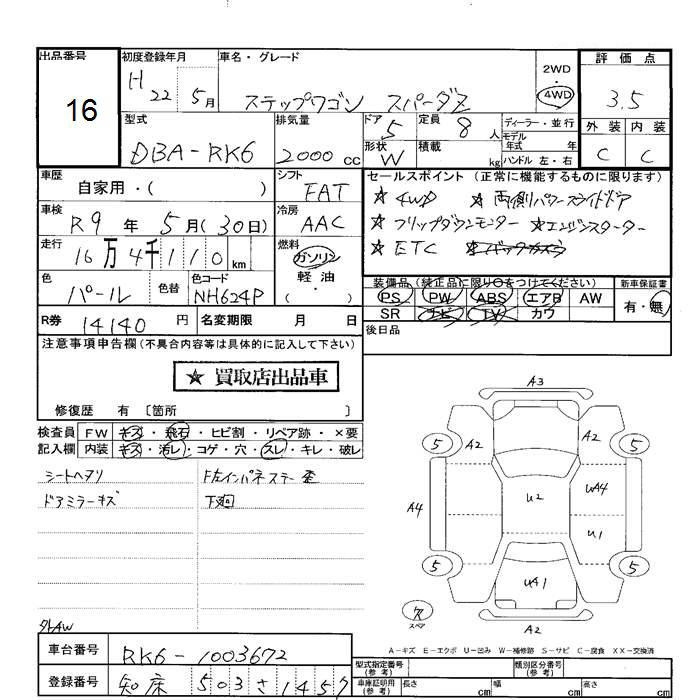 出品番号 初度登録年月 車名・グレード 評価点
16 H 22 5月 ステップワゴン スパーダZ 2WD ・ 4WD 3.5
型式 排気量 ドア 定員 ディーラー・並行 外装 内装
DBA-RK6 2000cc 5 8人 モデル年式 年 C C
形状 W 積載 kg ハンドル 左・右
車歴 シフト セールスポイント (正常に機能するものに限ります)
自家用・( ) FAT ★4WD ★両側パワースライドドア
車検 冷房 ★フリップダウンモニター ★エンジンスターター
R9年 5月(30日) AAC ★ETC ★バックカメラ
走行 燃料
16万4千110km ガソリン 軽油 ( ・ )
色 色替 色コード 装備品 (純正品に限り○をつけてください) 新車保証書
パール NH624P PS PW ABS エアB AW 有・無
SR ナビ TV カワ
R券 14140円 名変期限 月 日 後日品
注意事項申告欄 (不具合内容等は具体的に記入して下さい)
★ 買取店出品車
修復歴 有 〔箇所 〕
検査員 FW キズ・飛石・ヒビ割・リペア跡・×要
記入欄 内装 キズ・汚レ・コゲ・穴・スレ・キレ・破レ
シートヘタリ F左インパネステー歪
ドアミラーキズ 下廻
A3
5 A2 A2 5
A4 U2 UA4
U1
5 UA1 5
ス スペア A2
外AW
A-キズ E-エクボ U-凹み W-補修跡 S-サビ C-腐食 XX-交換済
車台番号 RK6-1003672 型式指定番号 (参考) 類別区分番号 (参考)
登録番号 知床 503 さ 1457 車庫証明用 (参考) 長さ cm 幅 cm 高さ cm